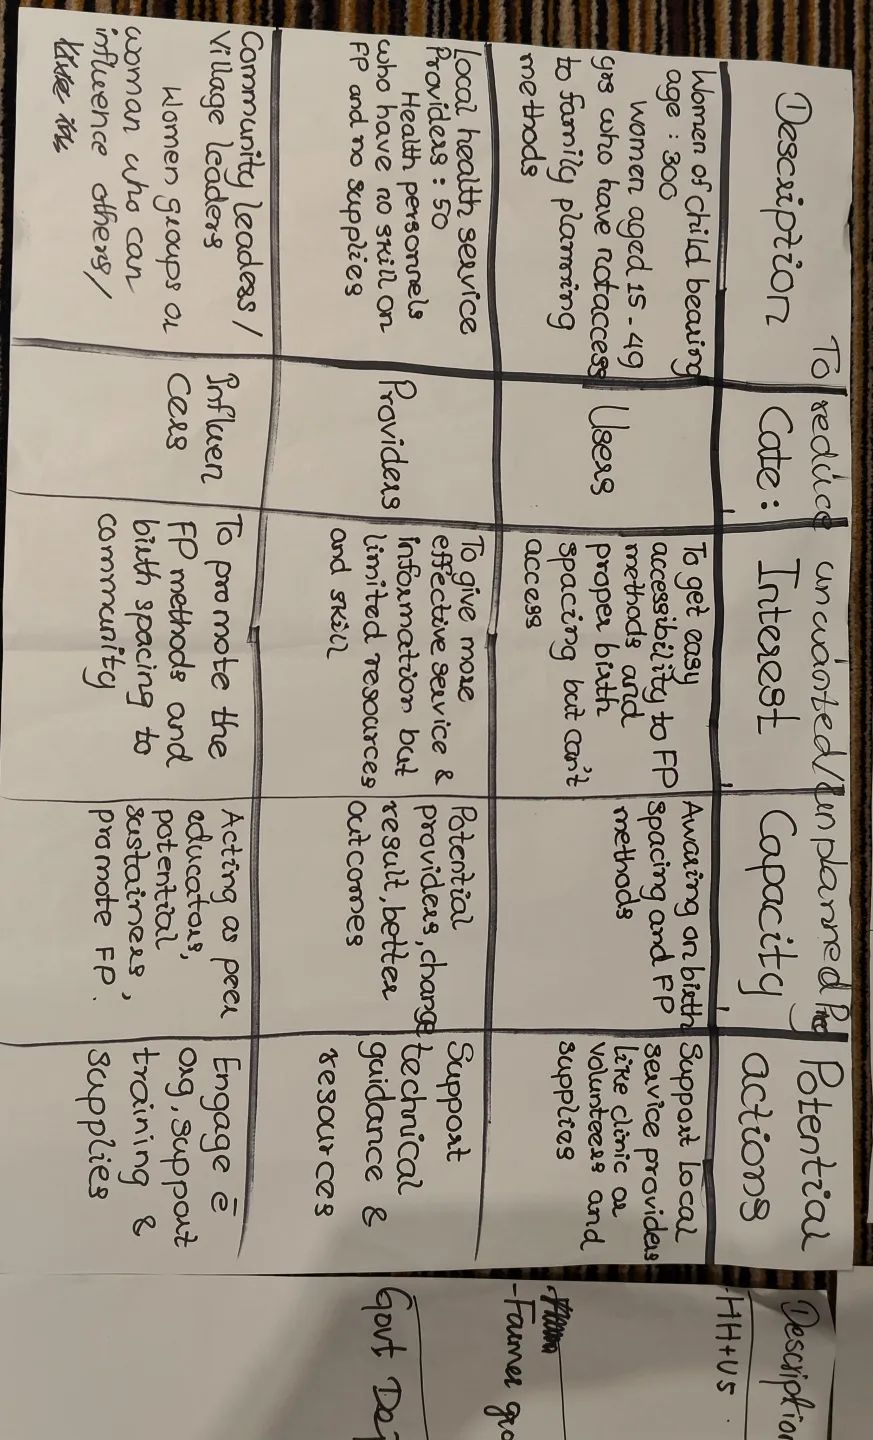 To reduce unwanted/unplanned Preg
Description
Cate:
Interest
Capacity
Potential
actions
Women of child bearing
age : 300
Women aged 15-49
yrs who have not access
to family planning
methods
Users
To get easy
accessibility to FP
methods and
proper birth
spacing but can't
access
Awaring on birth
spacing and FP
methods
Support Local
service providers
like clinic or
volunteers and
supplies
Local health service
Providers : 50
Health personnels
who have no skill on
FP and no supplies
Providers
To give more
effective service &
information but
limited resources
and skill
Potential
providers, change
result, better
outcomes
Support
technical
guidance &
resources
Community leaders/
Village leaders
Women groups or
woman who can
influence others/
Influen
cers
To promote the
FP methods and
birth spacing to
community
Acting as peer
educators,
potential
sustainers,
promote FP.
Engage c̄
org, support
training &
supplies
Description
-HH+US.
-Farmer gro
Govt Dep